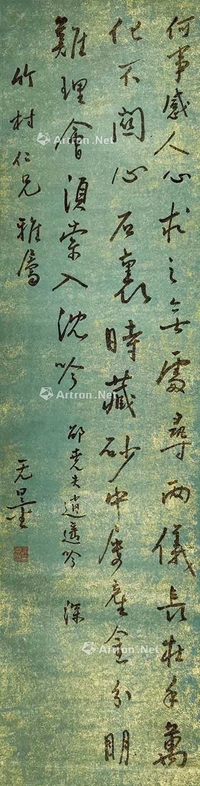 何事感人心求之無處尋兩儀長在手萬
化不關心石裏時藏砂中屢產金分明
難理會須索入沈吟 邵堯夫逍遙吟 深
竹村仁兄雅屬
无量
Artron.Net
Artron.Net
Artron.Net
Artron.Net